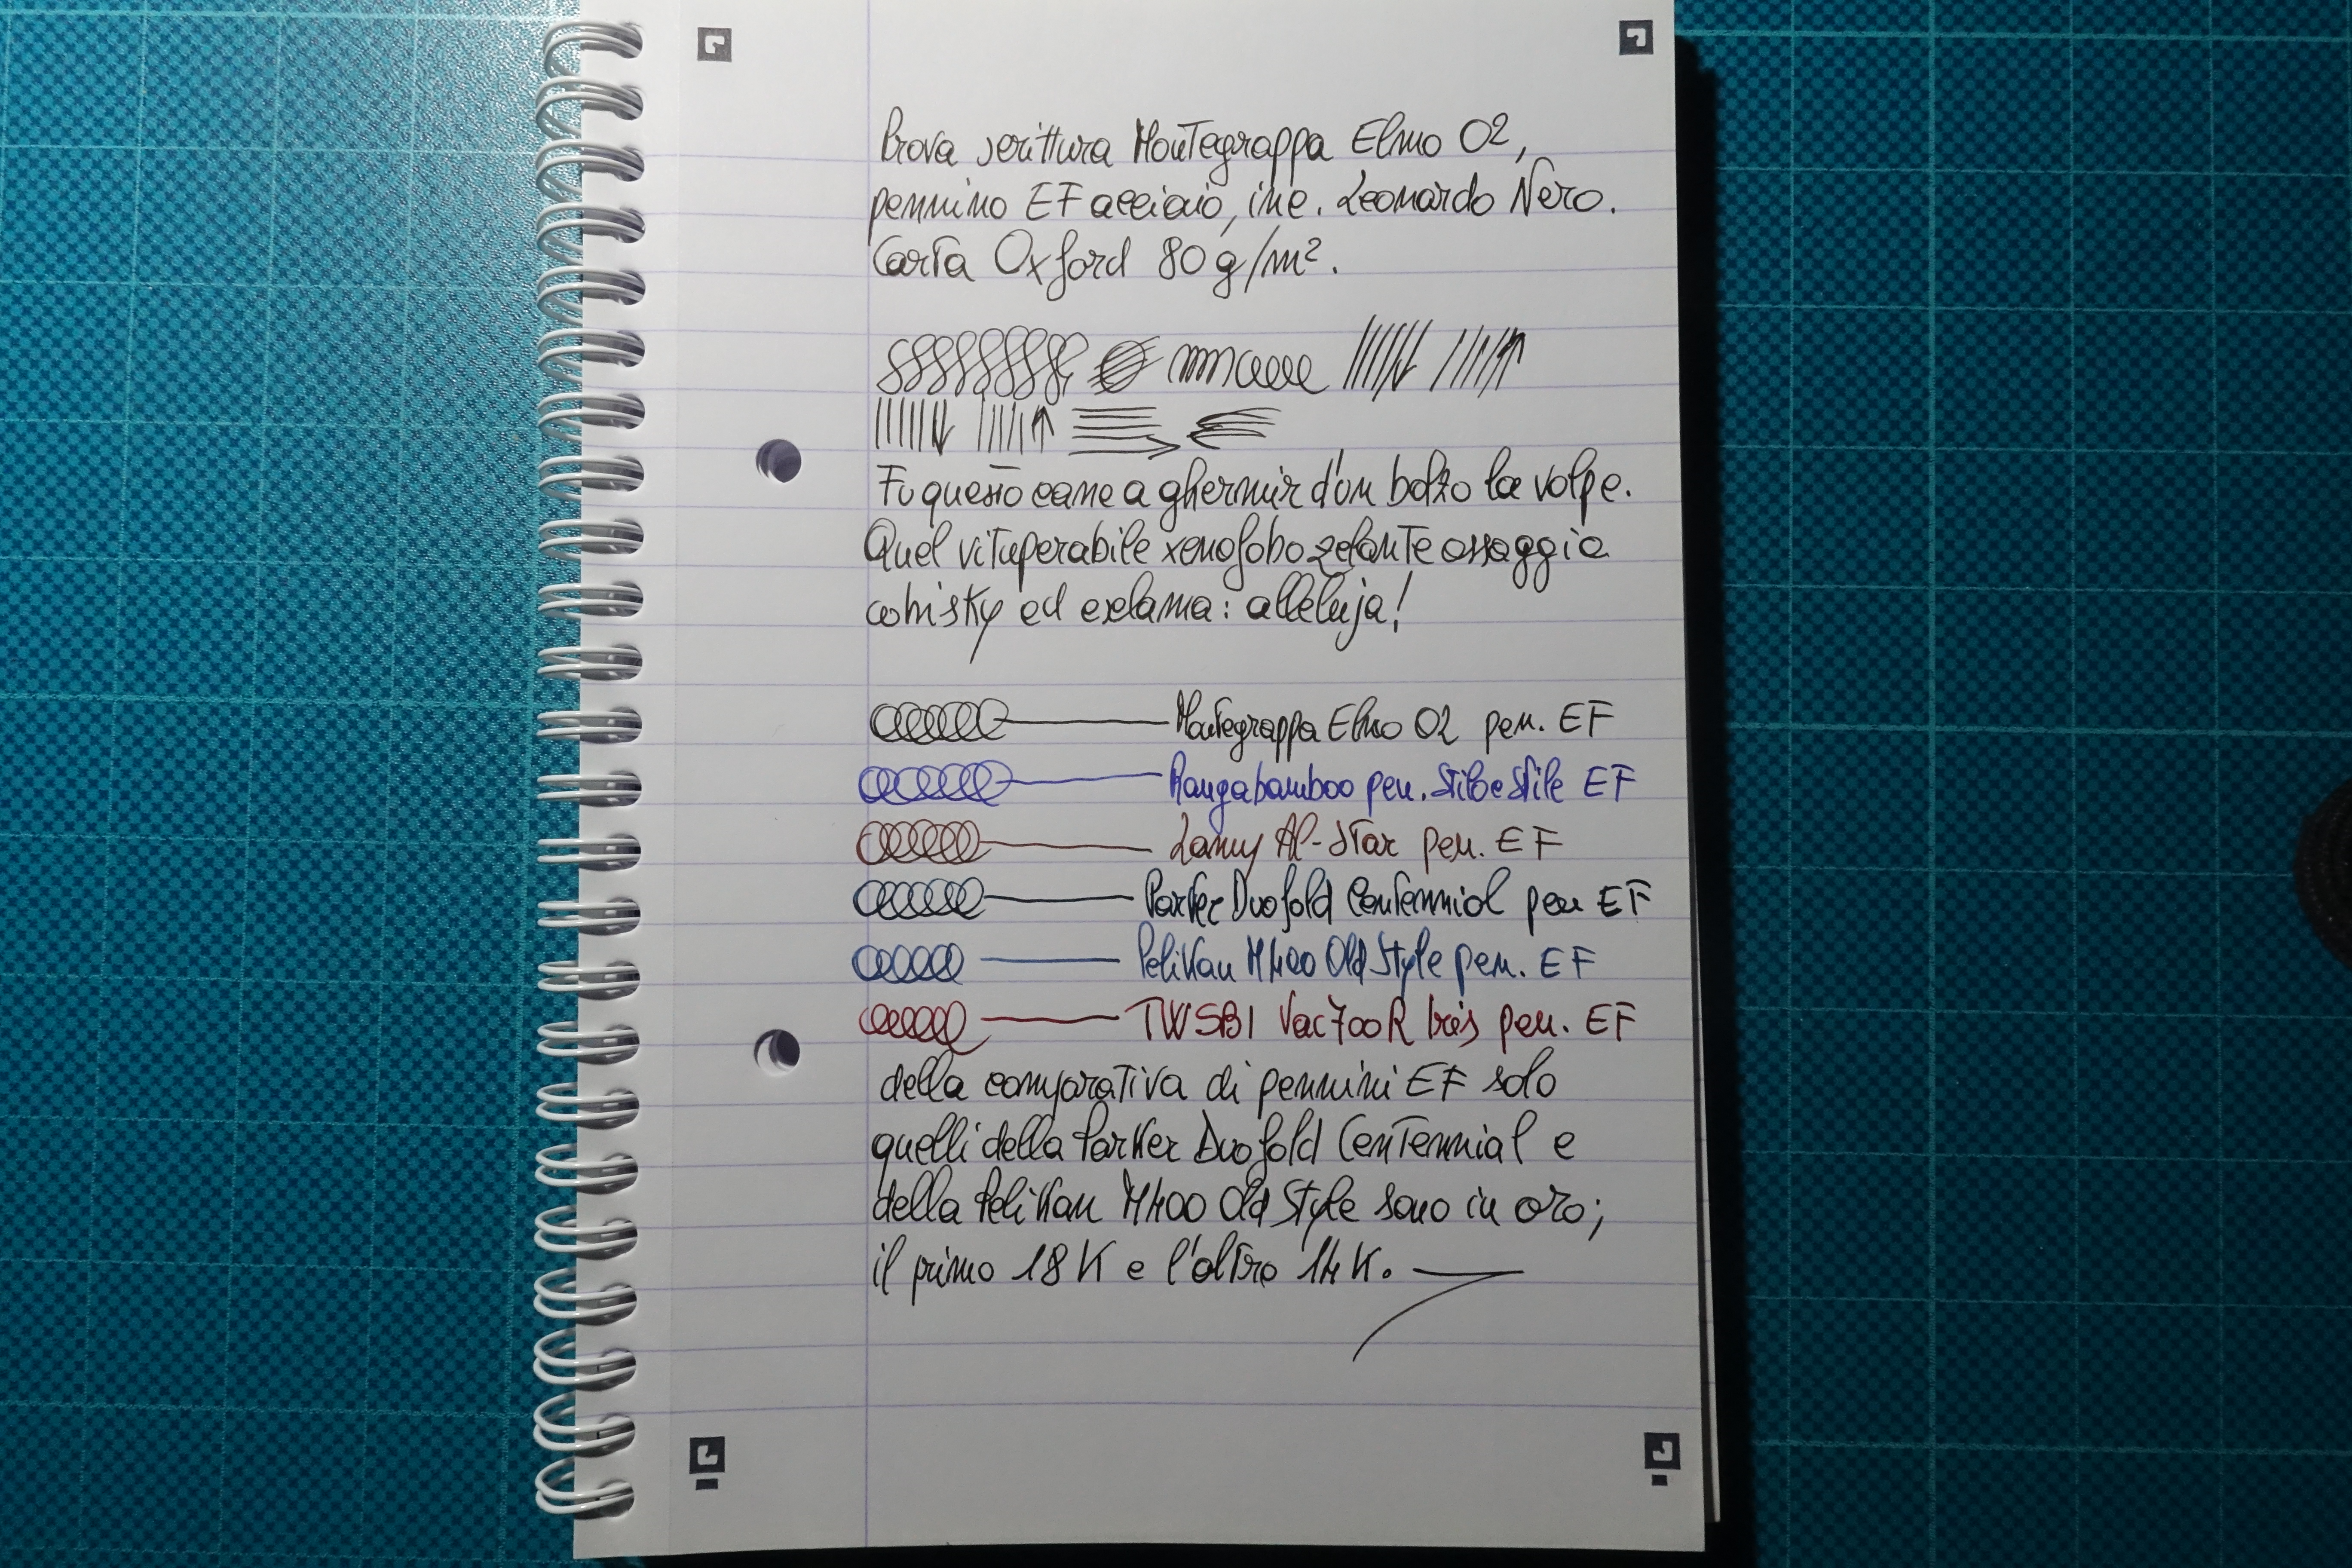 Prova scrittura Montegrappa Elmo 02,
pennino EF acciaio, inc. Leonardo Nero.
Carta Oxford 80 g/m².
Fu questo cane a ghermir d'un balzo la volpe.
Quel vituperabile xenofobo zelante assaggia
whisky ed exclama: alleluja!
Montegrappa Elmo 02 pen. EF
Ranga bamboo pen. Stilo e Stile EF
Lamy Al-Star pen. EF
Parker Duofold Centennial pen EF
Pelikan M400 Old Style pen. EF
TWSBI Vac 700R Iris pen. EF
della comparativa di pennini EF solo
quelli della Parker Duofold Centennial e
della Pelikan M400 Old Style sono in oro;
il primo 18 K e l'altro 14 K.